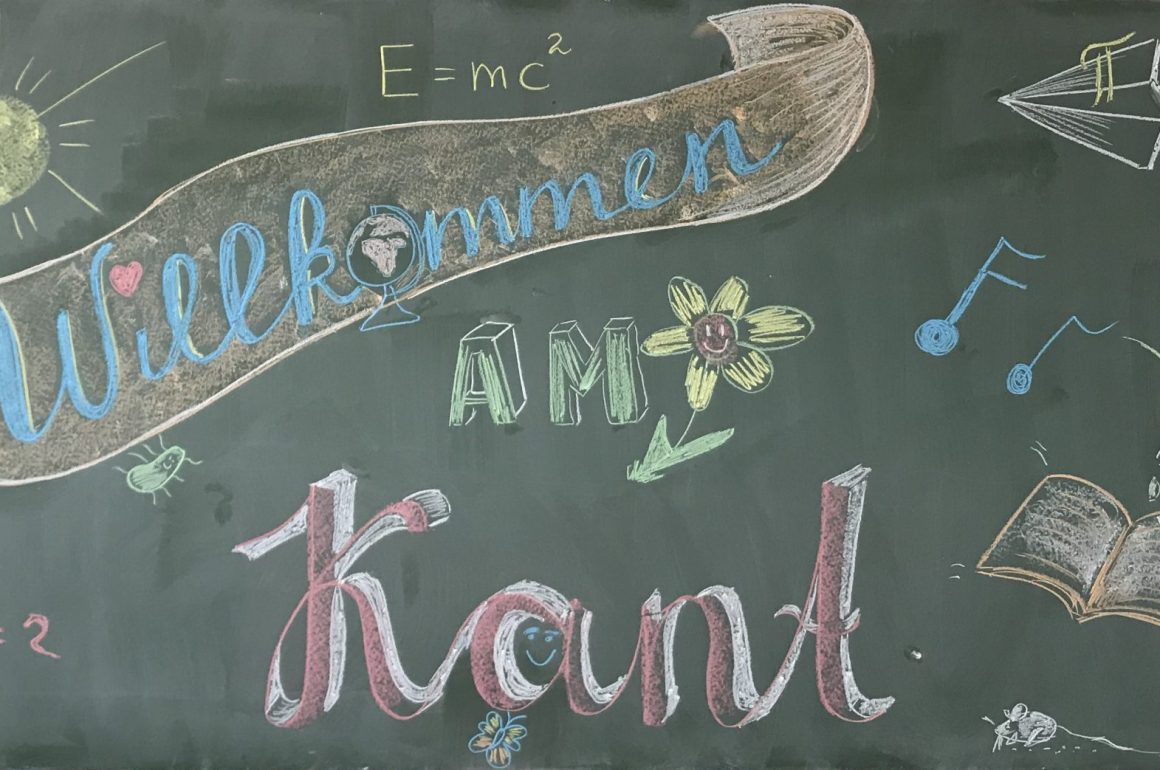 E=mc²
π
Willkommen
AM
Kant
=2